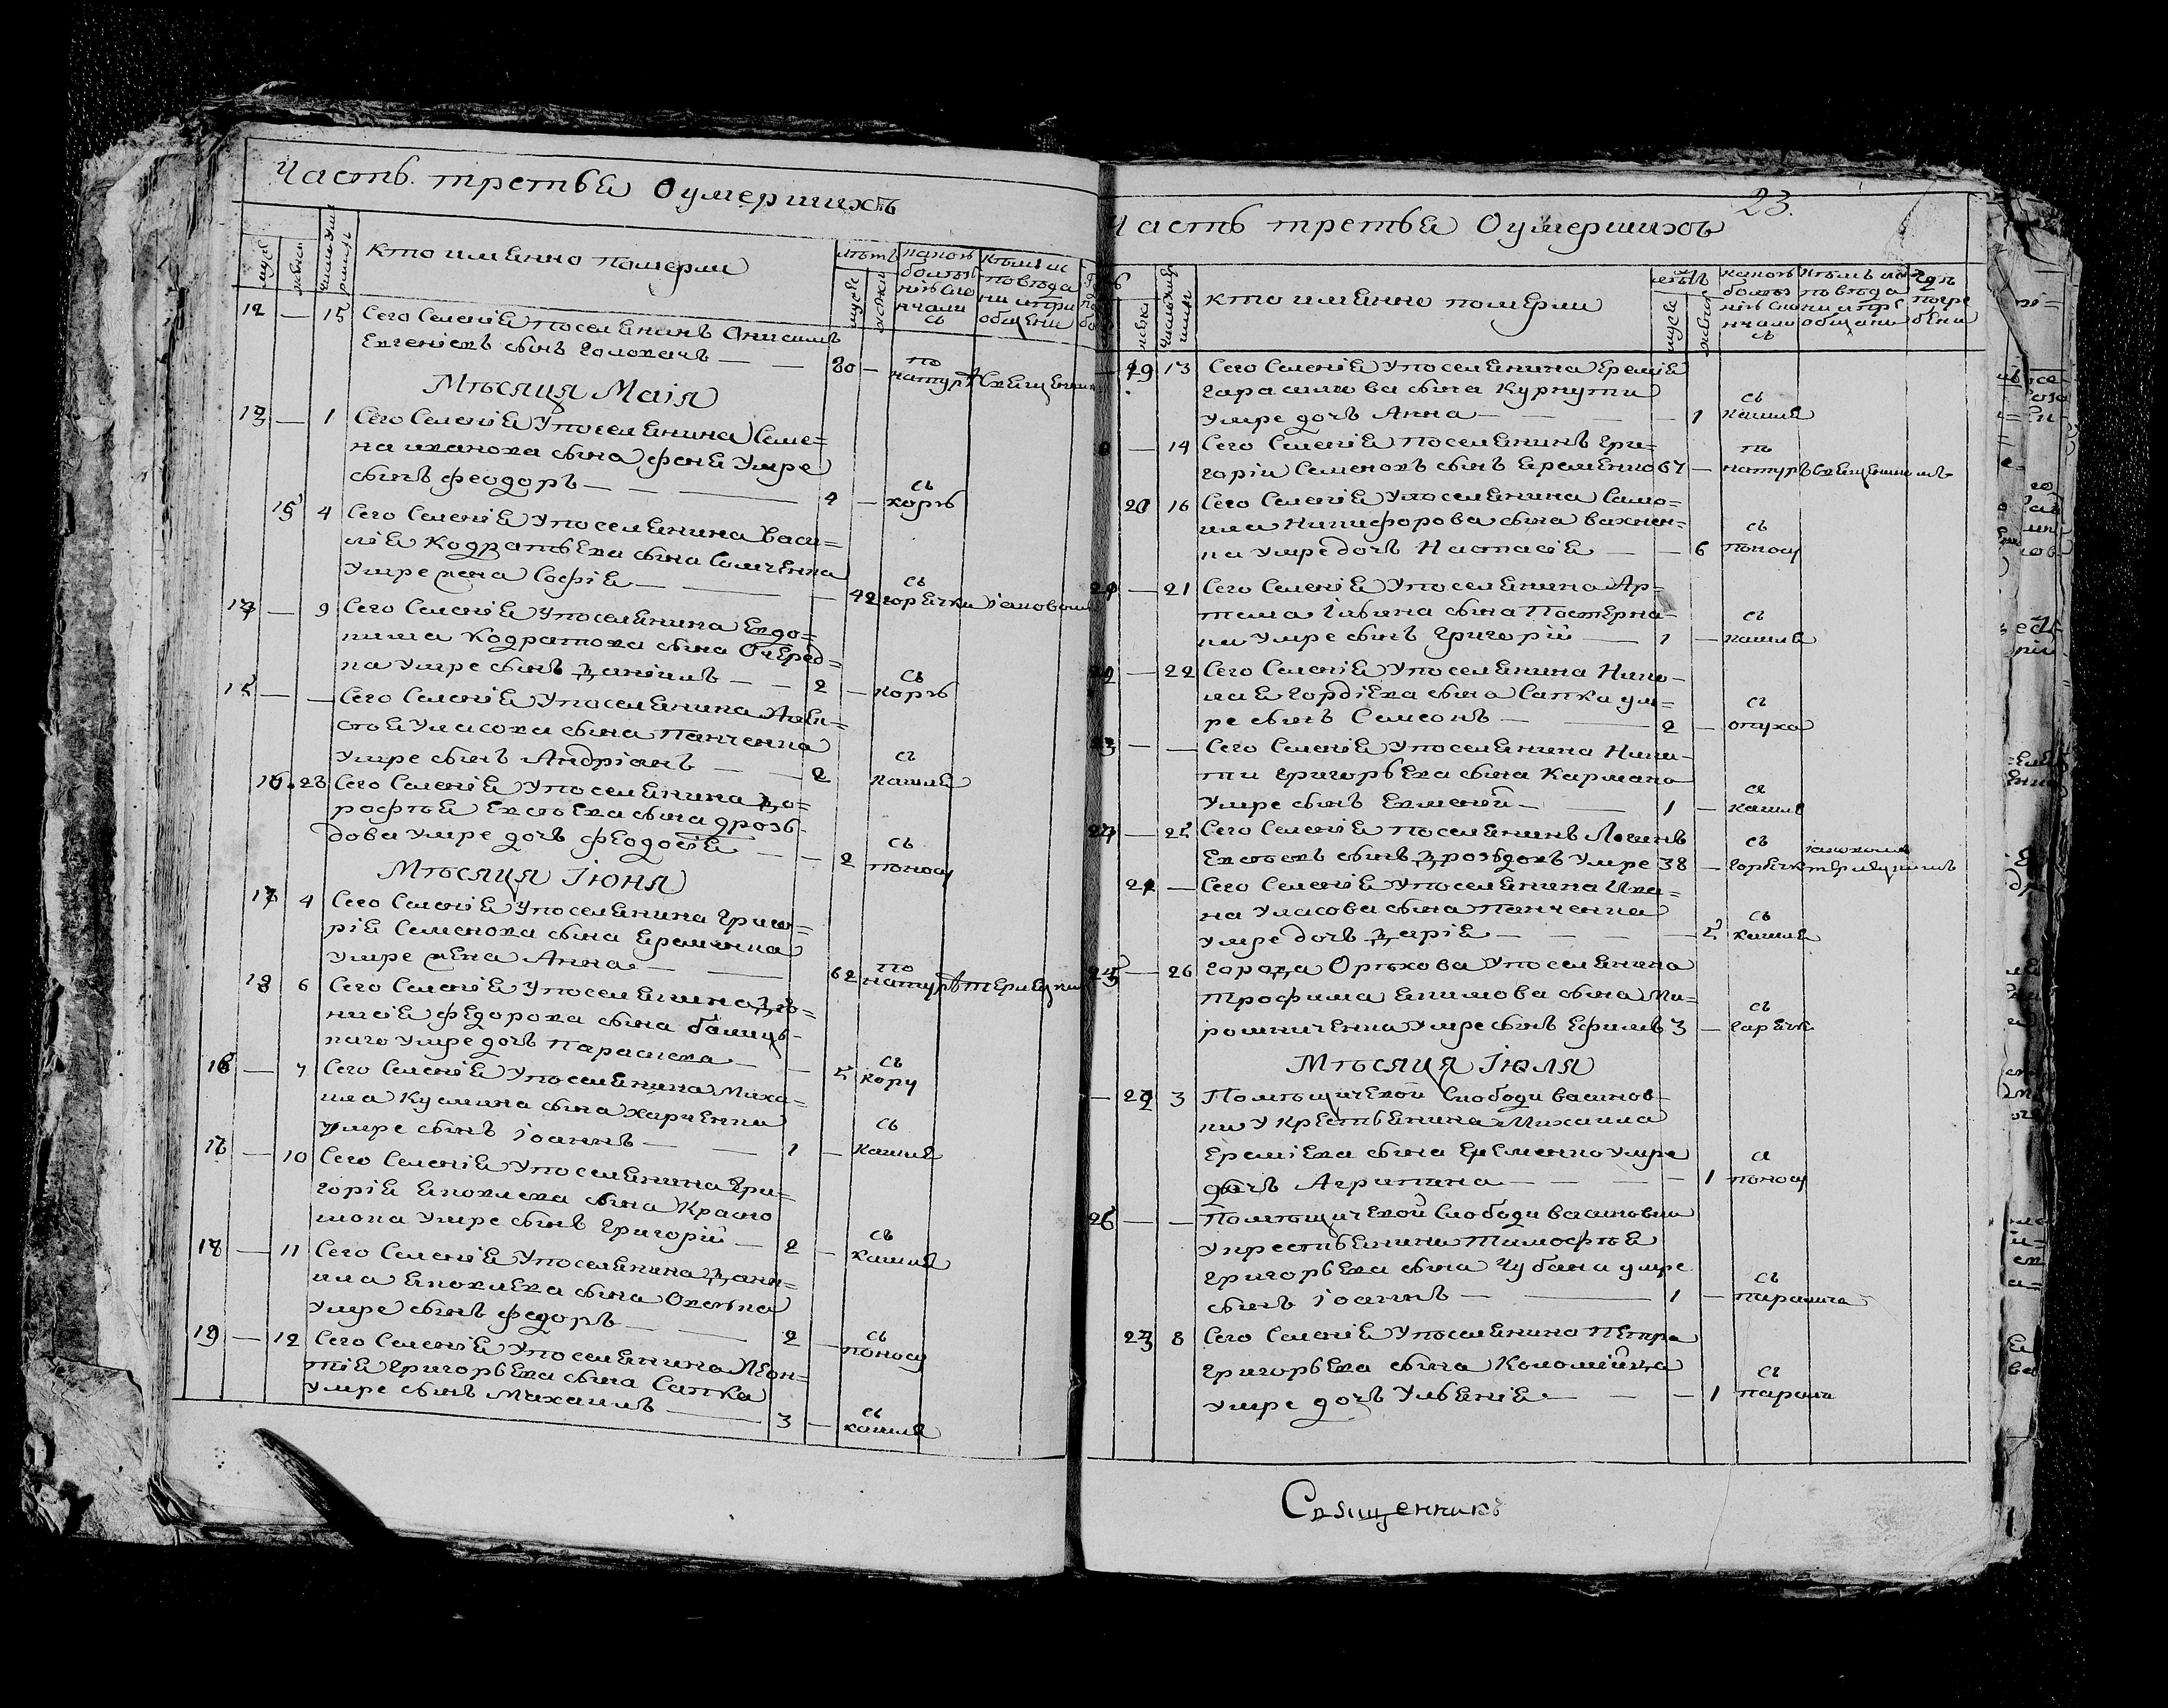 Часть третья Оумершихъ
муск
женск
число умершихъ
кто имянно померли
лѣтъ
муск
женск
какою болѣзнію скончались
кѣмъ исповѣданы и приобщены
12 — 15 Сего Селенія поселянинъ Онисимъ
Евгеніевъ сынъ Голован — 80 — по натурѣ Священник
Мѣсяца Маія
13 — 1 Сего Селенія У поселянина Семе=
на иванова сына фена Умре
сынъ феодоръ — — 4 — съ корѣ
15 4 Сего Селенія У поселянина Васи=
лія Кодратьева сына Сомченка
Умре жена Софія — — 42 съ горячки іаковом
14 — 9 Сего Селенія У поселянина Евдо=
кима Кодратова сына Очеред=
ка Умре сынъ Даніилъ — — 2 — съ корѣ
15 — — Сего Селенія У поселянина
Уласова сына Панченка
Умре сынъ Андріанъ — — 2 съ кашля
16 23 Сего Селенія У поселянина До=
рофѣя Евсѣева сына дрозъ-
дова Умре дочъ феодосія — — 2 съ поносу
Мѣсяца Іюня
17 4 Сего Селенія У поселянина Григо=
рія Семенова сына Еременка
Умре жена Анна — — 62 по натурѣ
18 6 Сего Селенія У поселянина Діо=
нисія Федорова сына
Умре дочъ Параскева — — 5 съ кору
16 — 7 Сего Селенія У поселянина Миха=
ила Кузмина сына Харченка
Умре сынъ іоаннъ — — 1 — съ кашля
17 — 10 Сего Селенія У поселянина Гри=
горія Яковлева сына Красно
шапа Умре сынъ Григорій — 2 — съ кашля
18 — 11 Сего Селенія У поселянина Дани=
ила Яковлева сына
Умре сынъ Федоръ — — 2 — съ поносу
19 — 12 Сего Селенія У поселянина Леон=
тія Григорьева сына Сапка
Умре сынъ Михаилъ — 3 — съ кашля
23.
Часть третья Оумершихъ
кто имянно померли
лѣтъ
муск
женск
какою болѣзнію скончались
кѣмъ исповѣданы и приобщены
гдѣ погребены
— 19 13 Сего Селенія У поселянина Еремія
Гарасимова сына Курпути
Умре дочъ Анна — — — 1 съ кашля
— 14 Сего Селенія поселянинъ Гри=
горій Семеновъ сынъ Еременко 67 — по натурѣ Священникомъ
20 16 Сего Селенія У поселянина Само=
ила Никифорова сына Вахнен=
ка Умре дочъ Настасія — — 6 съ поносу
21 — 21 Сего Селенія У поселянина Ар=
тема Ільина сына Постерна=
ка Умре сынъ Григорій — 1 — съ кашля
22 — 22 Сего Селенія У поселянина Нико-
лая Гордіева сына Сапка ум=
ре сынъ Самсонъ — — 2 — съ опуха
23 — — Сего Селенія У поселянина Ники-
ти Григорьева сына Кармана
Умре сынъ Евменій — — 1 — съ кашля
24 — 25 Сего Селенія поселянинъ Логинъ
Евсѣевъ сынъ Дроздовъ Умре 38 — съ горячк
21 — Сего Селенія У поселянина Ива=
на Уласова сына Панченка
Умре дочъ Дарія — — — 5 съ кашля
25 — 26 Города Орѣхова У поселянина
Трофима Якимова сына Ми-
рошниченка Умре сынъ Ефимъ 3 — съ горячк
Мѣсяца Іюля
— 22 3 Помѣщичекой Слободи васинов-
ки У крестьянина Михаила
Еремѣева сына Еременко Умре
дочъ Агрипина — — — 1 съ поносу
26 — — Помѣщичекой Слободи васиновки
У крестьянина Тимофѣя
Григорьева сына Чубана умре
сынъ іоаннъ — — 1 — съ паралича
23 8 Сего Селенія У поселянина Петра
Григорьева сына Коломійца
Умре дочъ Ульянія — — — 1 съ парали
Священникъ